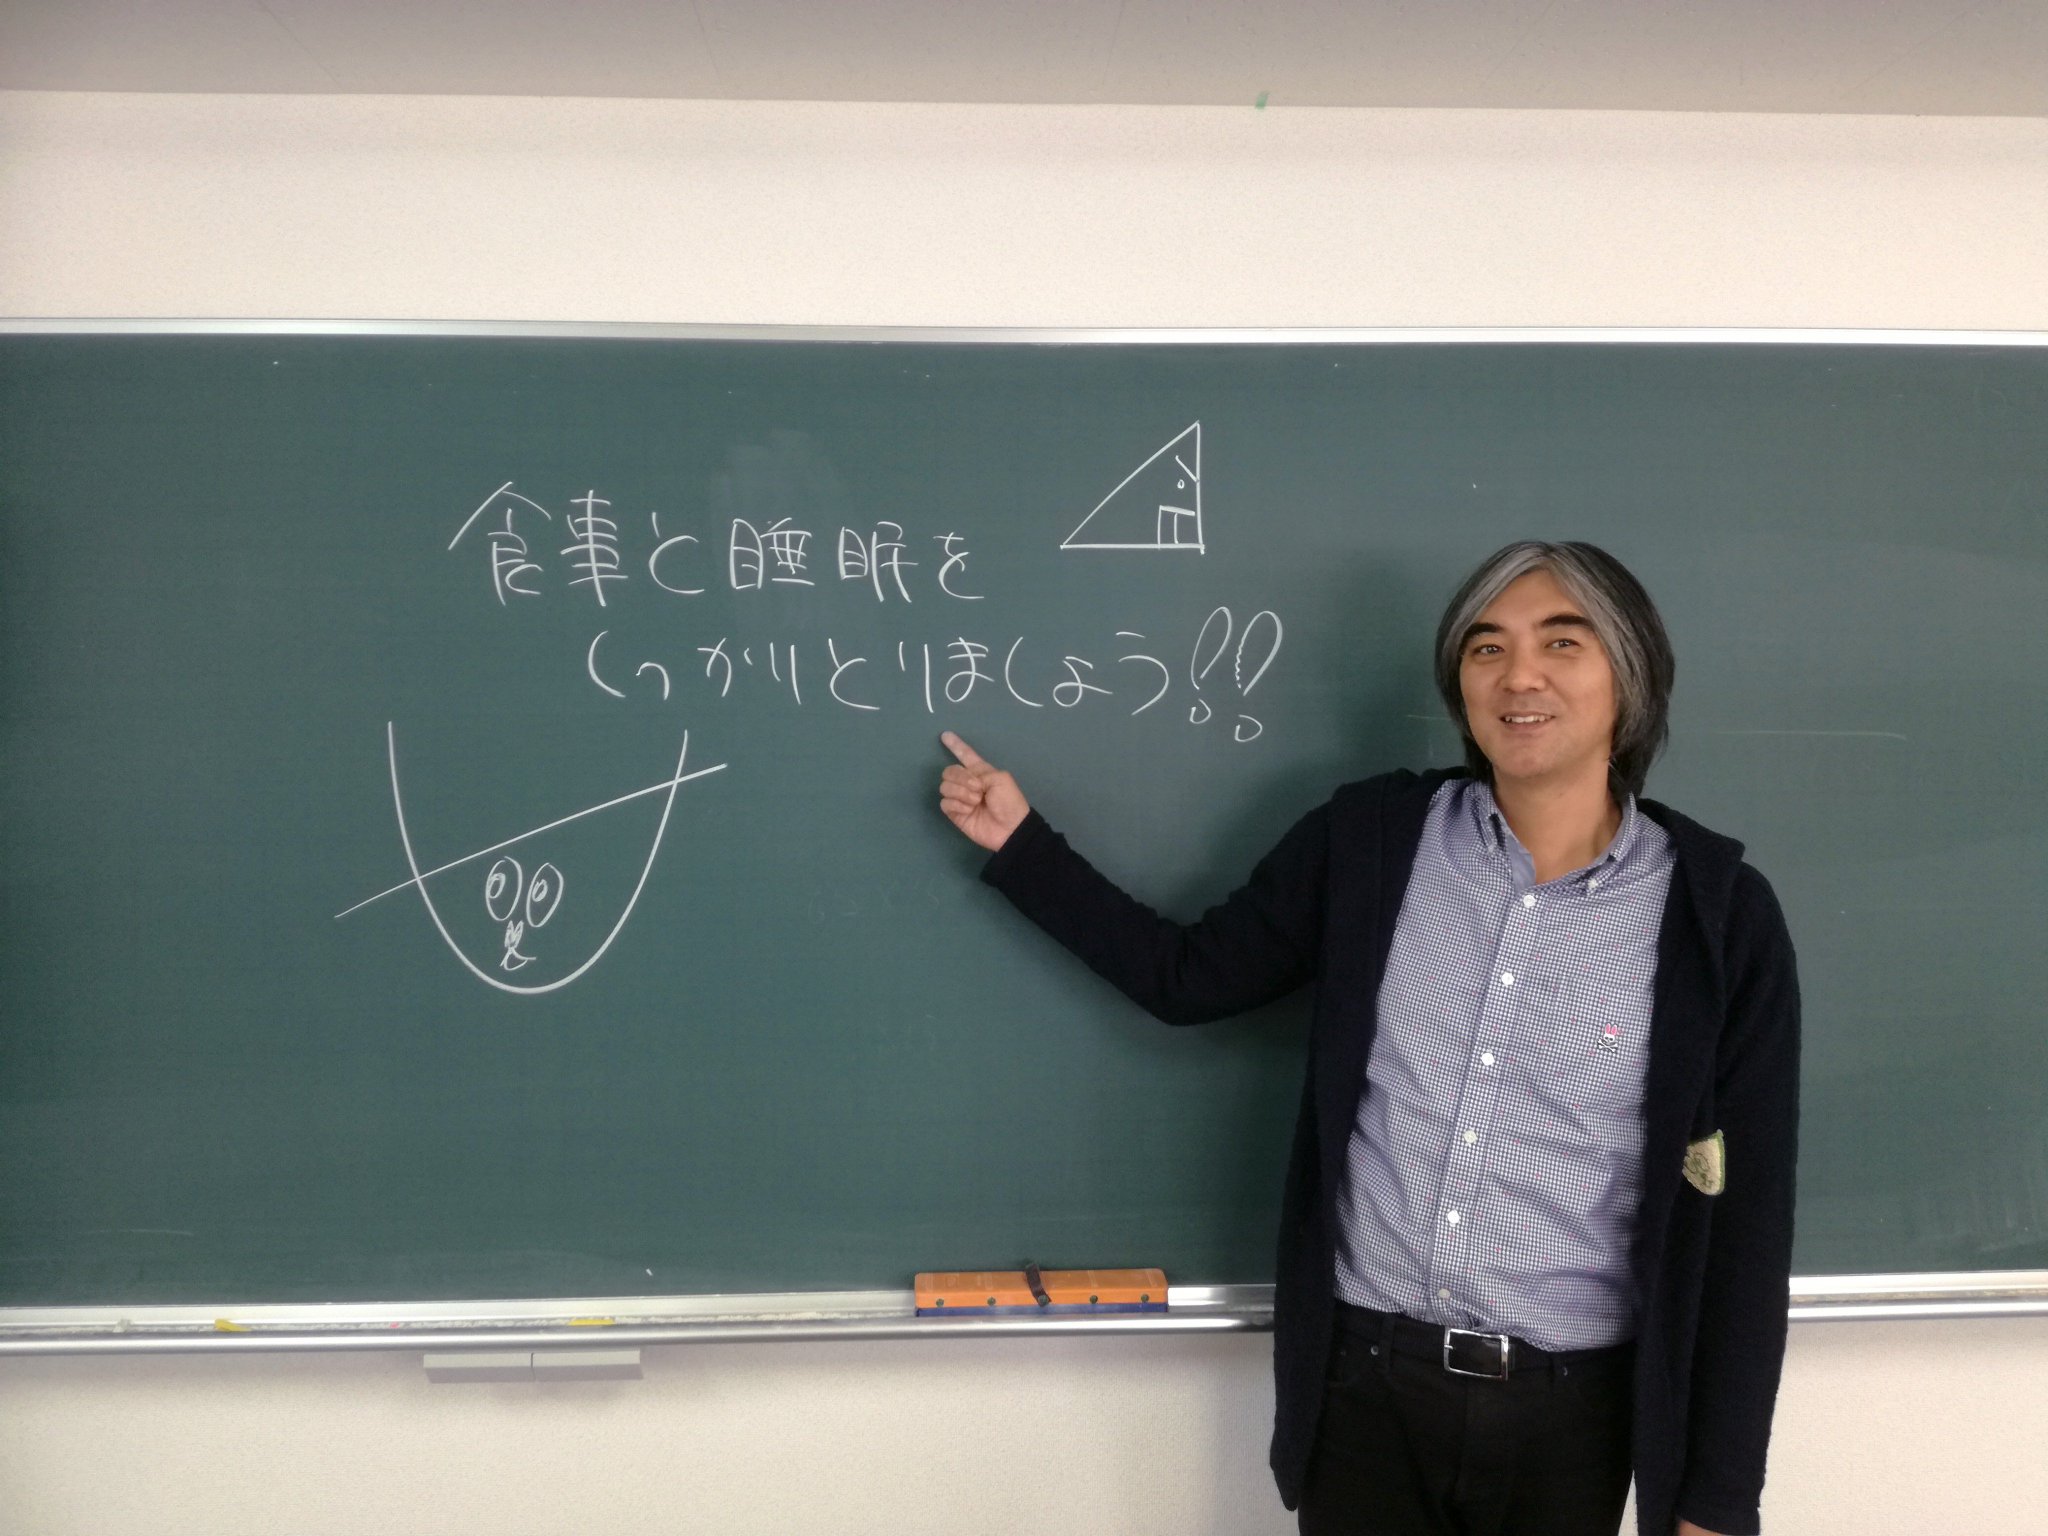 食事と睡眠を
しっかりとりましょう!!